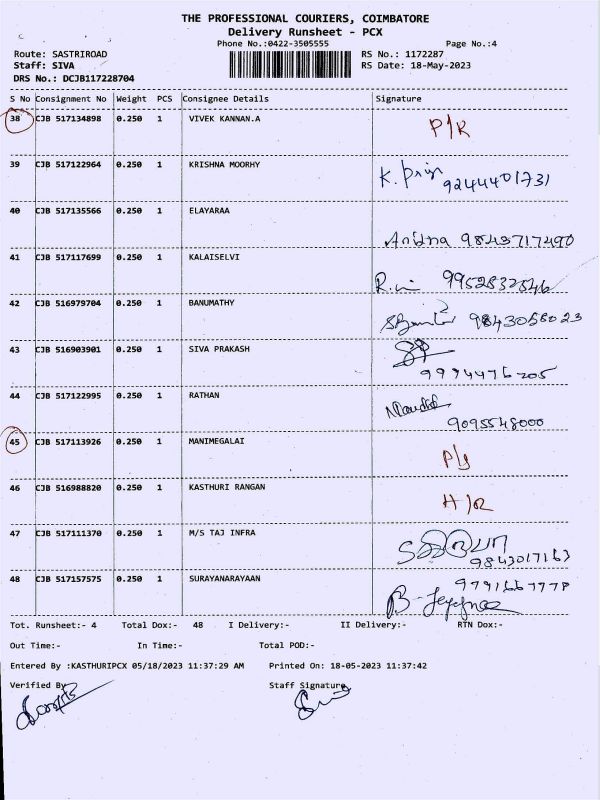 THE PROFESSIONAL COURIERS, COIMBATORE
Delivery Runsheet - PCX
Phone No.:0422-3505555
Page No.:4
Route: SASTRIROAD
RS No.: 1172287
Staff: SIVA
RS Date: 18-May-2023
DRS No.: DCJB117228704
S No Consignment No Weight PCS Consignee Details Signature
38 CJB 517134898 0.250 1 VIVEK KANNAN.A P/R
39 CJB 517122964 0.250 1 KRISHNA MOORHY K. 9244401731
40 CJB 517135566 0.250 1 ELAYARAA 9843717490
41 CJB 517117699 0.250 1 KALAISELVI 9952832546
42 CJB 516979704 0.250 1 BANUMATHY 9843056023
43 CJB 516903901 0.250 1 SIVA PRAKASH 9994476205
44 CJB 517122995 0.250 1 RATHAN 9095548000
45 CJB 517113926 0.250 1 MANIMEGALAI
46 CJB 516988820 0.250 1 KASTHURI RANGAN H/R
47 CJB 517111370 0.250 1 M/S TAJ INFRA 9843017163
48 CJB 517157575 0.250 1 SURAYANARAYAAN 9791667778
Tot. Runsheet:- 4 Total Dox:- 48 I Delivery:- II Delivery:- RTN Dox:-
Out Time:- In Time:- Total POD:-
Entered By :KASTHURIPCX 05/18/2023 11:37:29 AM Printed On: 18-05-2023 11:37:42
Verified By Staff Signature